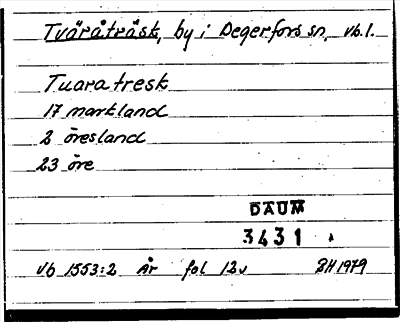 Tväråträsk, by i Degerfors sn, Vb.l.
Tuaratresk
17 markland
2 öresland
23 öre
DAUM
3431
Vb 1553:2 År fol 12v BH 1979